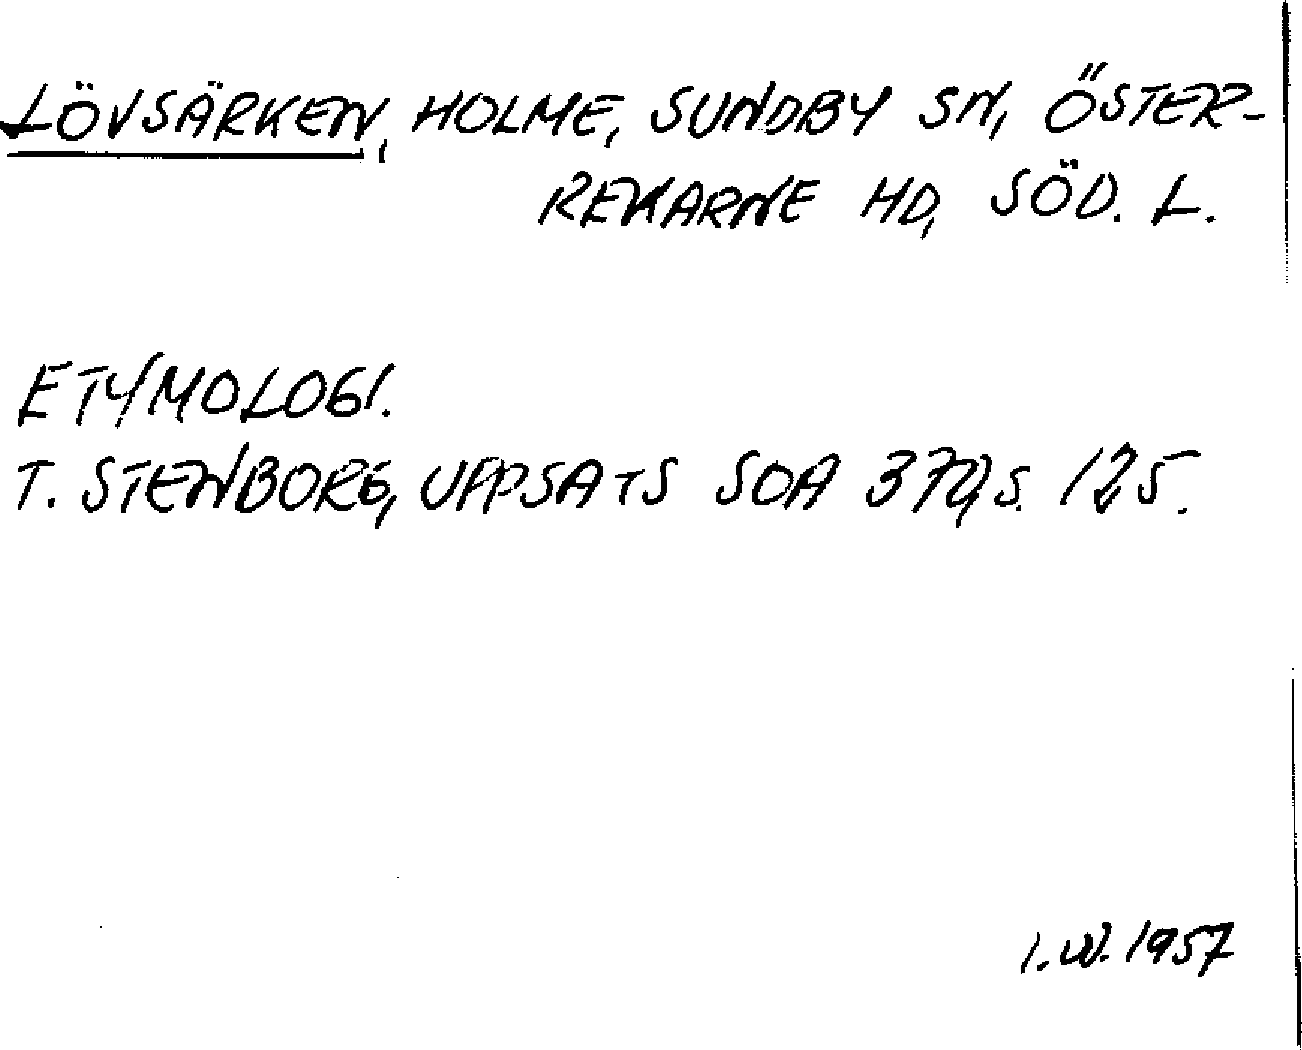 LÖVSÄRKEN, HOLME, SUNDBY SN, ÖSTER-
REKARNE HD, SÖD. L.
ETYMOLOGI.
T. STENBORG, UPPSATS SOA 3702, S. 125.
I.W. 1957